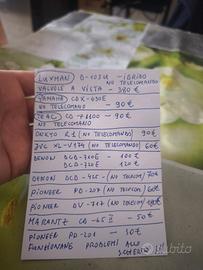 LUXMAN D-103u - IBRIDO
NO TELECOMANDO
VALVOLE A VISTA - 380 €
YAMAHA CDX-490E
NO TELECOMANDO - 90€
TEAC - CD-P1100 - 90€
NO TELECOMANDO
ONKYO R1 (NO TELECOMANDO) 90€
JVC XL-V174 (NO TELECOMANDO) 60€
DENON DCD-720E - 100€
DCD-710E - 120€
DENON DCD-425 - (NO TELECOM) 70€
PIONEER PD-207 (NO TELECOM) 60€
PIONEER DV-717 (NO TELECOM)
MARANTZ CD-65 II - 50€
PIONEER PD-201 - 30€
FUNZIONANO PROBLEMI ALLO
SPORTELLO
Subito